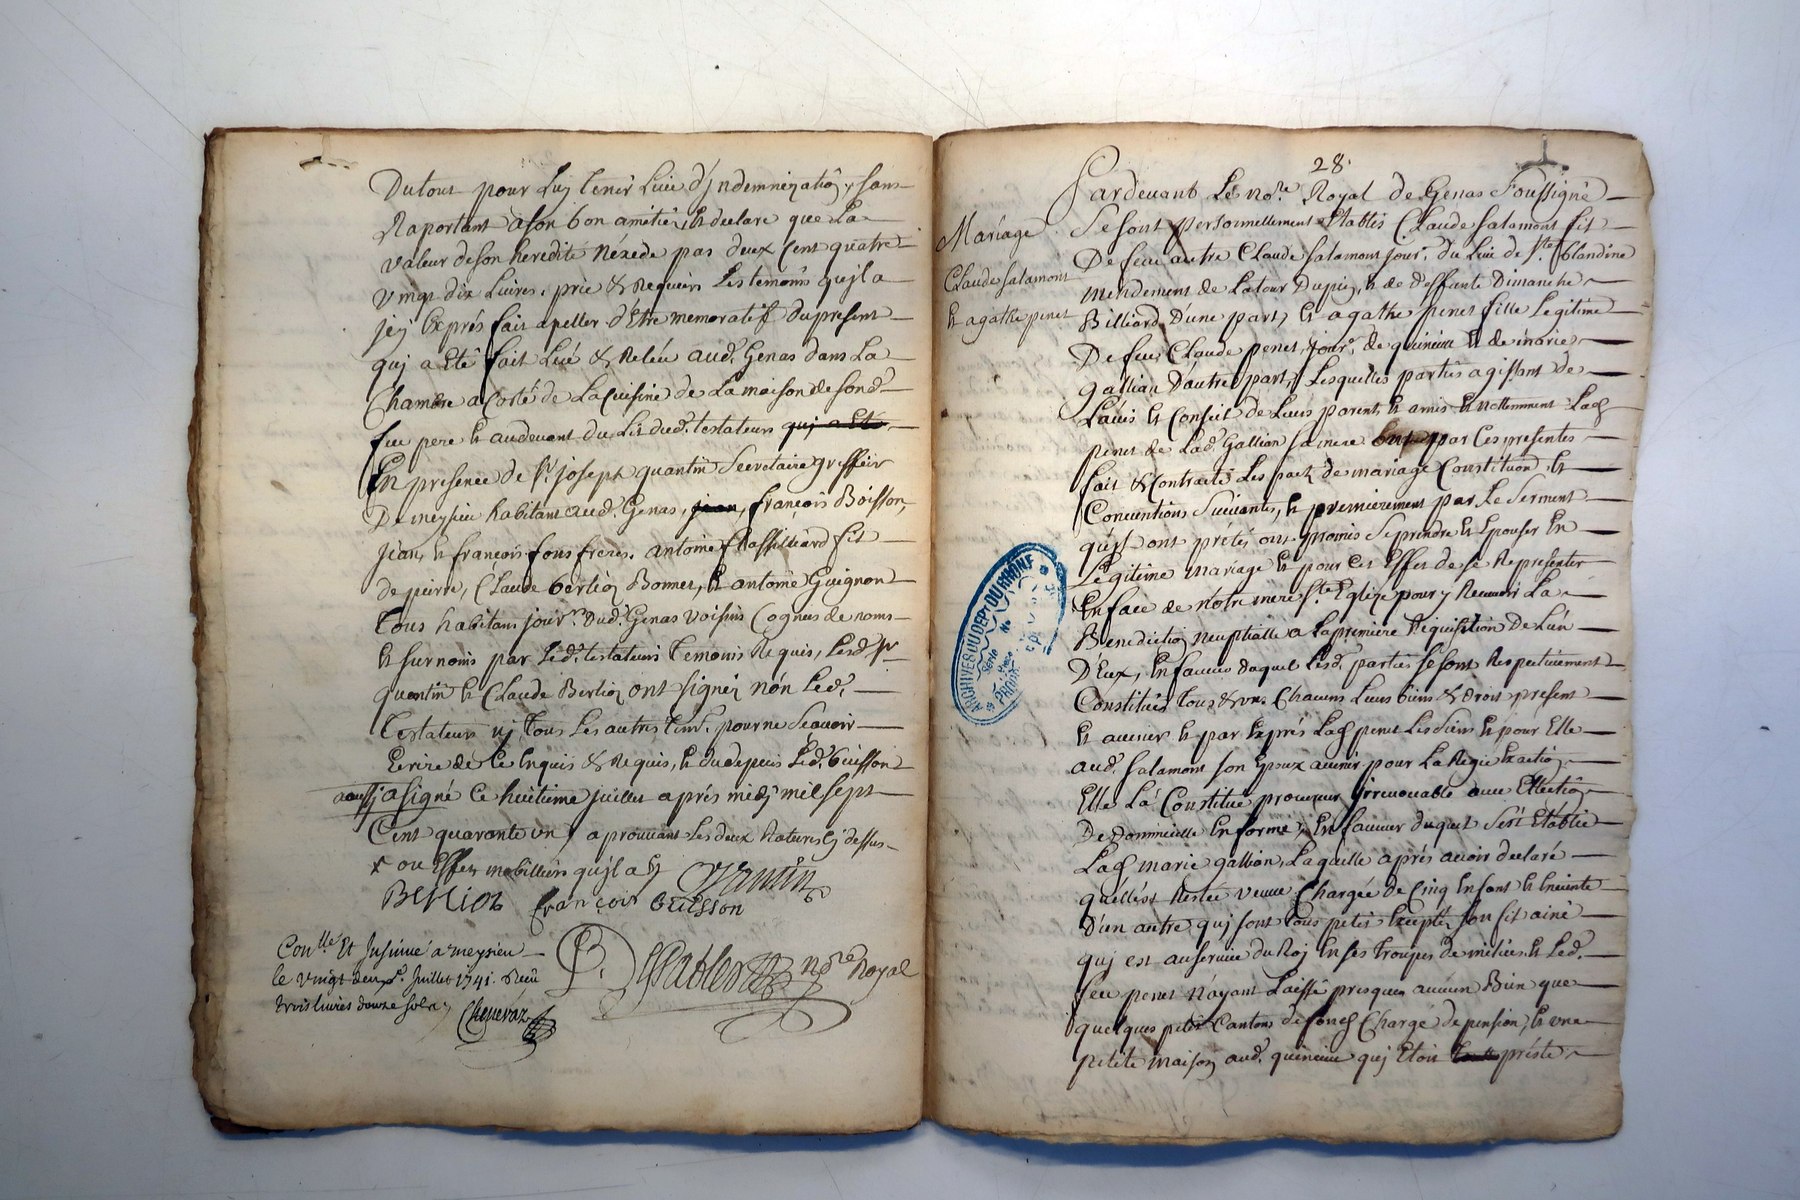 Du tout pour luy tenir lieu d'jndemnization, sans
Raportant a son bon amitié, et declare que La
valeur de son heredité N'éxede pas deux Cent quatre
vingt dix Livres, prié & Requeris Les temoins qujl a
jcy Exprés fait apeller d'Etre memoratif du present
quj a Eté fait Lœu & Releu aud. Genas dans La
Chambre a Costé de La Cuisine de La maison de son d.
feu pere et audevant du Lit dud. testateur quj a Eté
En presence de Sr. joseph quantin Secretaire greffier
De meysieu habitant aud. Genas, jean, françois Boisson,
jean, et françois fons freres, antoine Chassilliard fit
de pierre, Claude berlioz Bonnet, et antoine Guignon
Tous habitans jour.rs dud. Genas voisins Cognus de noms
et surnoms par Led. testateur Temoins Requis, Lesd. Sr.
quantin et Claude Berlioz ont signéz nón Led.
Testateur nj Tous Les autres tem. pour ne Scavoir
Ecrire de Ce Enquis & Requis, et du depuis Led. buisson
aussj a signé Ce huitieme juillet aprés midj mil sept
Cent quarante un, aprouvant Les deux Ratures Cj dessus
x ou Effets mobilliers qujl a et
Berlioz françois buesson quantin
nore Royal
Conlle Et Jnsinué a meysieu
le vingt deuxe. Juillet 1741. Reçu
trois livres douze sols
Chenevaz
28.
Pardevant Le nore. Royal de Genas Soussigné
Mariage
Claude salamont
et agathe penet
Se sont personnellement Etablis Claude salamont fit
De feu autre Claude salamont jour. du Lieu de Ste. blandine
mendement de Latour Dupin, et de deffunte Dimanche
Billiard D'une part, et agathe penet fille Legitime
De feu Claude penet, jour. de quinieux et de marie
gallian D'autre part, Lesquelles parties agissant de
L'avis et Conseil de Leurs parents et amis et nottemment Lad.
penet de Lad. Gallian sa mere ont par Ces presentes
fait & Contracté Les pactz de mariage Constitution et
Conventions Suivantes, et premierement par Le Serment
qu'jl ont prétés ont promis Se prendre et Epouser En
Légitime mariage et pour Cet Effet de sé Representer
En face de nôtre mere Ste. Eglize pour y Recevoir La
Benediction neuptialle a La premiere Réquisition De L'un
D'Eux, En faveur Duquel Lesd. parties se sont Respectivement
Constitués Tous & un Chacuns Leurs biens & droit present
et avenir et par Exprés Lad. penet Les siens et pour Elle
aud. salamont son Epoux avenir pour La Regie Exaction
Elle L'a Constitué procureur jrrevocable avec Ellection
De Dommicille En forme, En faveur duquel S'ést Etablie
Lad. marie gallian, Laquelle aprés avoir declaré
quelle ést Restée veuve Chargée de Cinq Enfant et Enceinte
D'un autre quj sont Tous petits Excepté Son fit ainé
quj est au service du Roj En Ses Troupes de milices, et Led.
feu penet N'ayant Laissé presques aucun Bien que
quelques petits Cantons de fonds Chargé de pension, et une
petite maison aud. quinieux quj Etoit préste
ARCHIVES DU DEPT DU RHONE